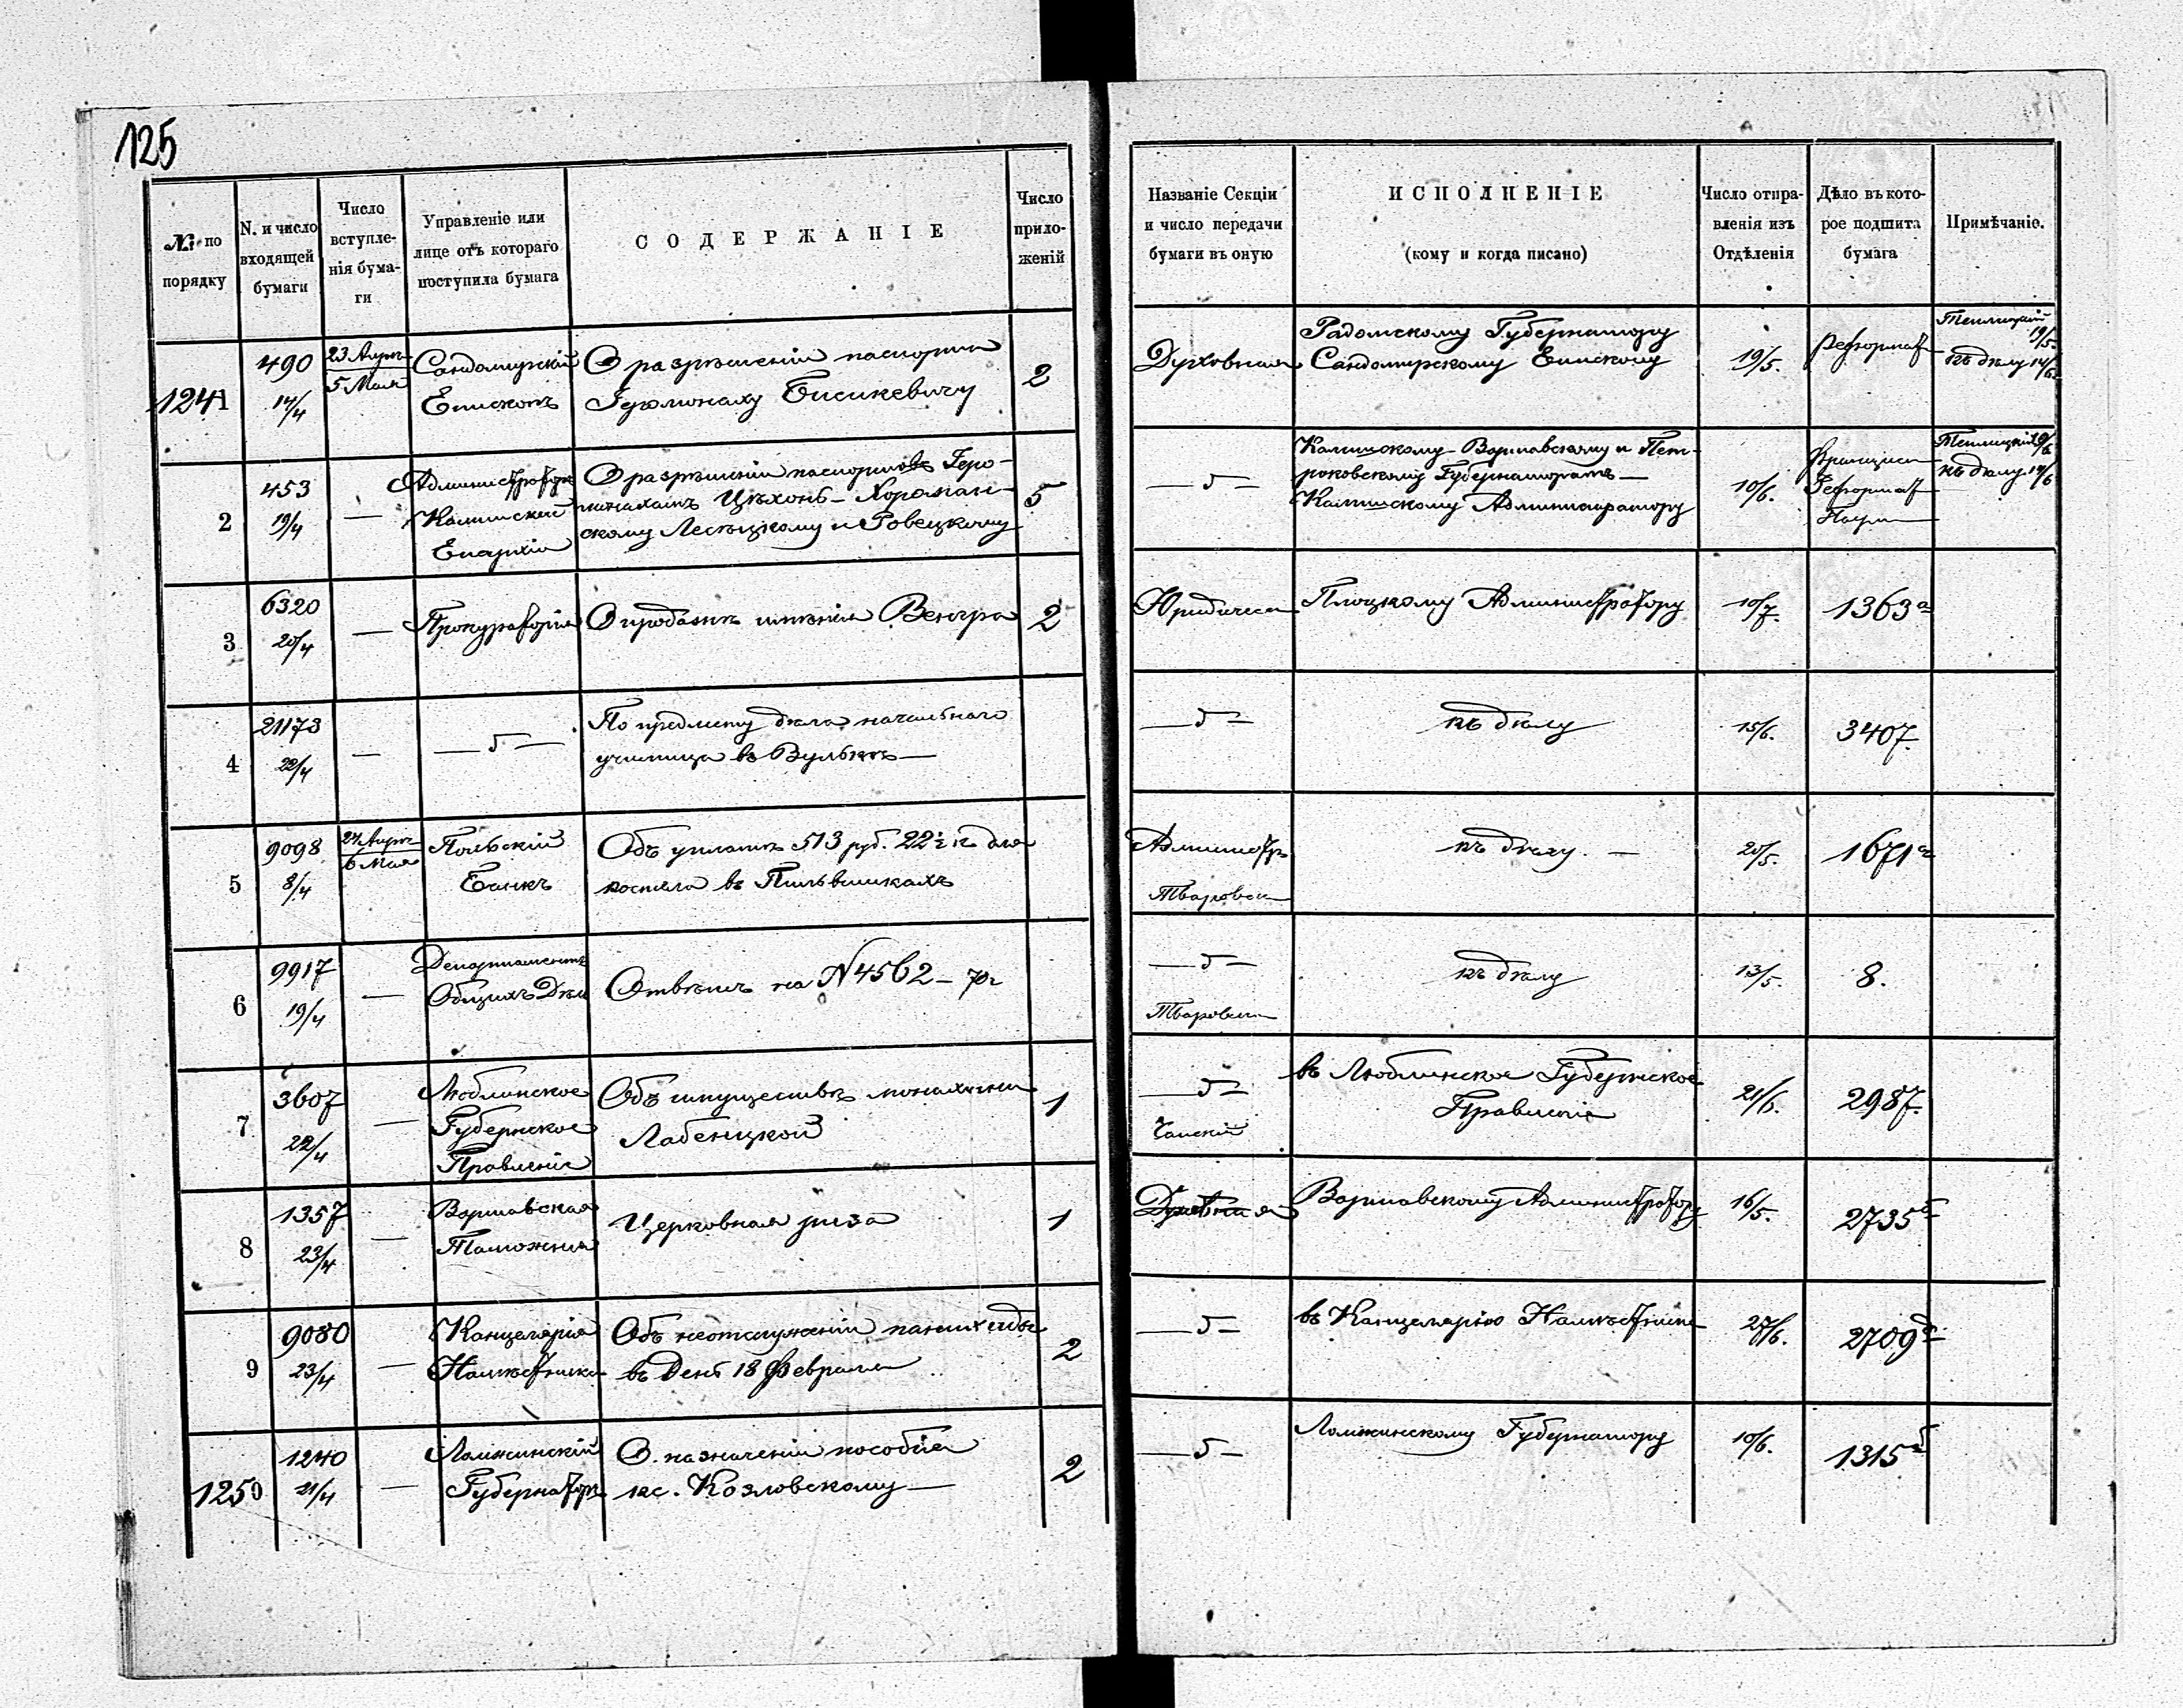 125
№ по порядку
N. и число входящей бумаги
Число вступле-нія бума-ги
Управленіе или лице отъ котораго поступила бумага
СОДЕРЖАНІЕ
Число прило-женій
Названіе Секціи и число передачи бумаги въ оную
ИСПОЛНЕНІЕ
(кому и когда писано)
Число отпра-вленія изъ Отдѣленія
Дѣло въ кото-рое подшита бумага
Примѣчаніе.
1241
490
14/4
23 Апрѣ
5 Мая
Сандомирскій
Епископъ
О разрѣшеніи паспорта
Іеромонаху
2
Духовная
Радомскому Губернатору
Сандомирскому Епископу
19/5.
Реформат
19/5
къ дѣлу 14/6
2
453
19/4
—
Администраторъ
Калишской
Епархіи
О разрѣшеніи паспортовъ Іеро-
монахамъ
скому и
5
— „ —
Калишскому Варшавскому и Пет-
роковскому Губернаторамъ —
Калишскому Администратору
10/6.
Реформат
къ дѣлу 14/6
3
6320
20/4
—
Прокураторія
О продажѣ имѣнія Венгра
2
Юридическ
Плоцкому Администратору
10/7.
1363 а
4
21173
22/4
—
— „ —
По предмету дѣла начальнаго
училища въ Вулькѣ —
— „ —
къ дѣлу
15/6.
3407.
5
9098
8/4
24 Апрѣ
6 Мая
Польскій
Банкъ
Объ уплатѣ 513 руб. 22½ к для
костела въ Пильвишкахъ
Администр
къ дѣлу. —
20/5.
1671 а
6
9917
19/4
—
Департаментъ
Общихъ Дѣлъ
Отвѣтъ на N 4562 – 70 г
— „ —
къ дѣлу
13/5.
8.
7
3607
22/4
—
Люблинское
Губернское
Правленіе
Объ имуществѣ монахини
Лабенцкой
1
— „ —
въ Люблинское Губернское
Правленіе
21/6.
2987.
8
1357
23/4
—
Варшавская
Таможня
Церковная риза
1
Духовная
Варшавскому Администратору
16/5.
2735 б
9
9080
23/4
—
Канцелярія
Намѣстника
Объ неотслуженіи панихиды
въ день 18 Февраля
2
— „ —
въ Канцелярію Намѣстника
27/6.
2709
1250
1240
21/4
—
Ломжинскій
Губернаторъ
О назначеніи пособія
кс. Козловскому —
2
— „ —
Ломжинскому Губернатору
10/6.
1315 б